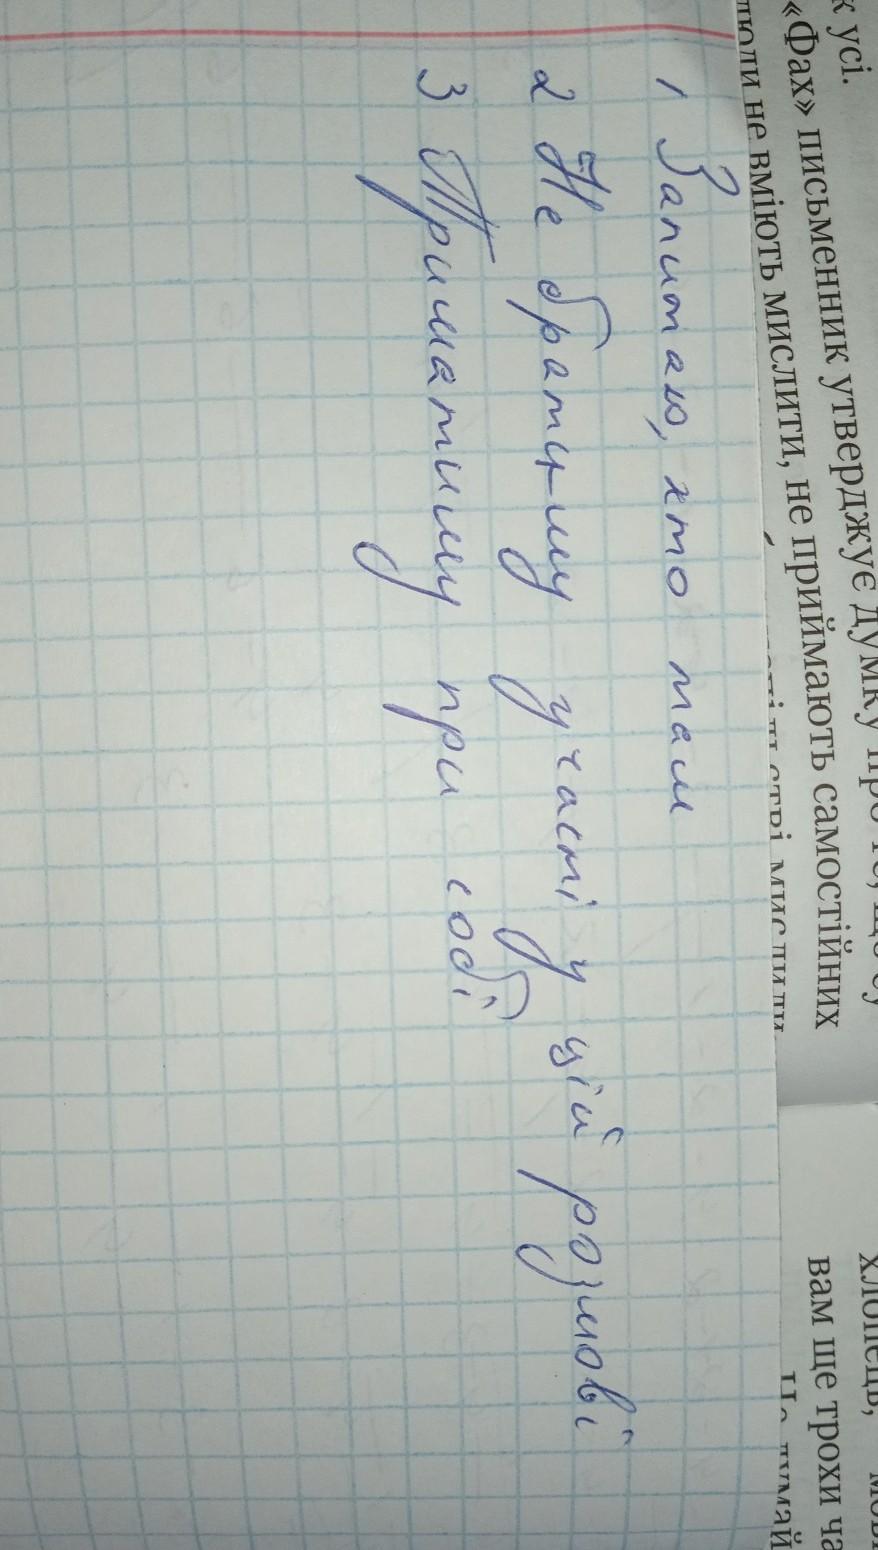 к усі.
«Фах» письменник утверджує думку про те, що
люди не вміють мислити, не приймають самостійних
мислили
хлопець,
вам ще трохи ча
Не думай
1 Запитаю, хто там
2 Не братиму участі у цій розмові
3 Триматиму при собі